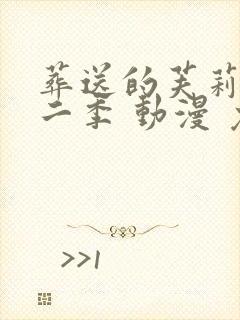 葬送的芙莉
二季 動漫
>>1